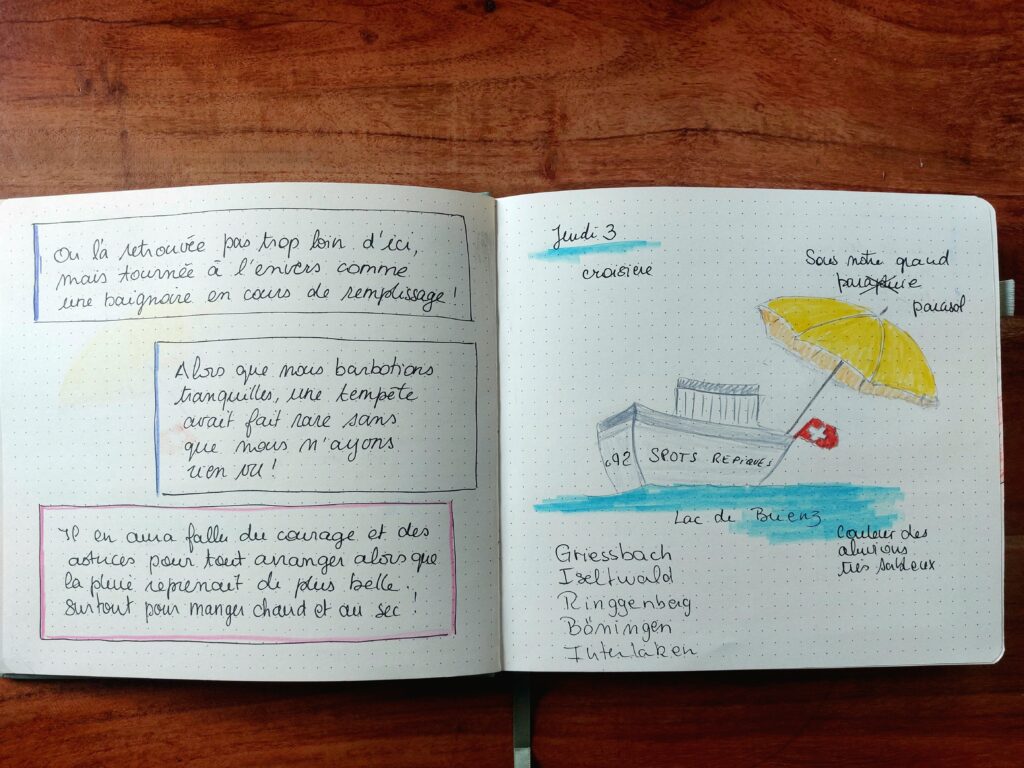 On l'a retrouvée pas trop loin d'ici,
mais tournée à l'envers comme
une baignoire en cours de remplissage !
Alors que nous barbotions
tranquilles, une tempête
avait fait rage sans
que nous n'ayons
rien vu !
Il en aura fallu du courage et des
astuces pour tout arranger alors que
la pluie reprenait de plus belle.
Surtout pour manger chaud et au sec !
Jeudi 3
croisière
Sous notre grand
parapluie
parasol
692
SPOTS REPIQUÉS
Lac de Brienz
Couleur des
aluvions
très sableux
Griessbach
Iseltwald
Ringgenberg
Böningen
Interlaken